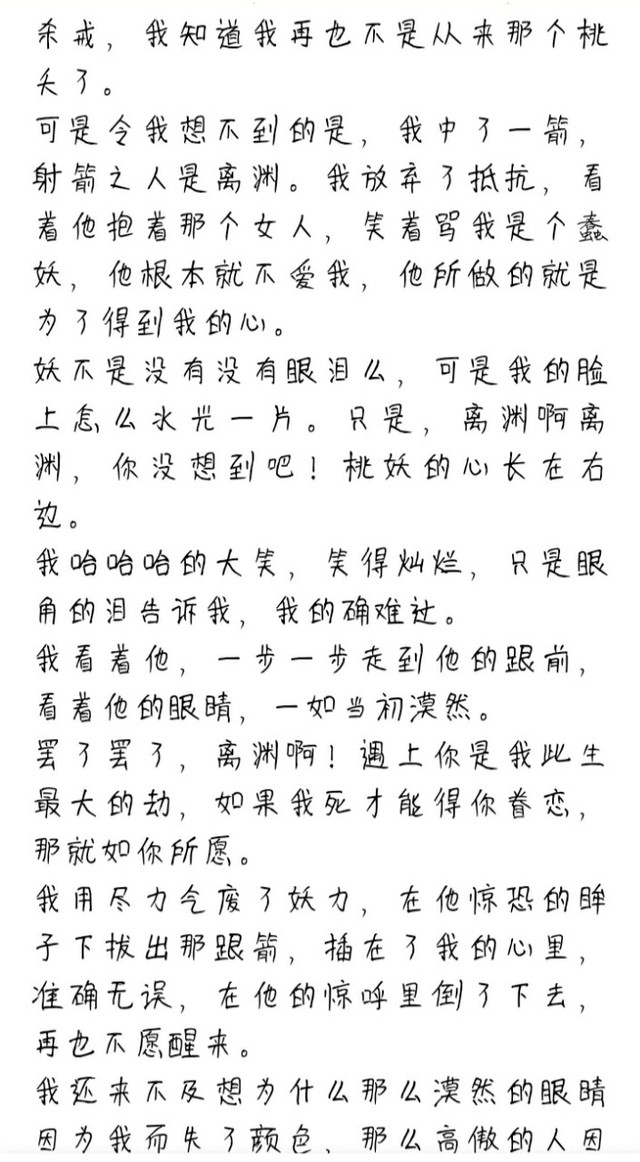 杀戒，我知道我再也不是从来那个桃
夭了。
可是令我想不到的是，我中了一箭，
射箭之人是离渊。我放弃了抵抗，看
着他抱着那个女人，笑着骂我是个蠢
妖，他根本就不爱我，他所做的就是
为了得到我的心。
妖不是没有没有眼泪么，可是我的脸
上怎么水光一片。只是，离渊啊离
渊，你没想到吧！桃妖的心长在右
边。
我哈哈哈的大笑，笑得灿烂，只是眼
角的泪告诉我，我的确难过。
我看着他，一步一步走到他的跟前，
看着他的眼睛，一如当初漠然。
罢了罢了，离渊啊！遇上你是我此生
最大的劫，如果我死才能得你眷恋，
那就如你所愿。
我用尽力气废了妖力，在他惊恐的眸
子下拔出那跟箭，插在了我的心里，
准确无误，在他的惊呼里倒了下去，
再也不愿醒来。
我还来不及想为什么那么漠然的眼睛
因为我而失了颜色，那么高傲的人因